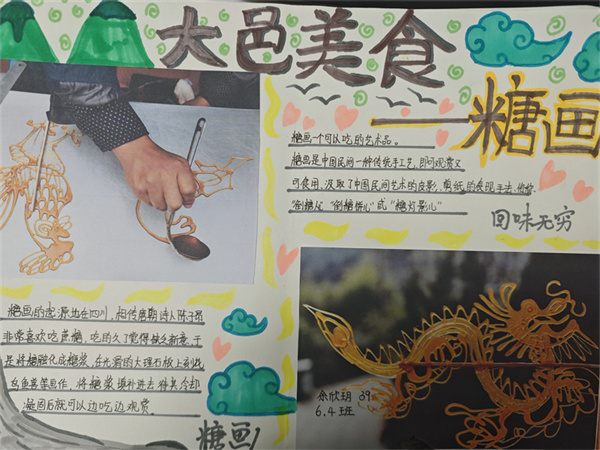 大邑美食
——糖画
糖画一个可以吃的艺术品。
糖画是中国民间一种传统手工艺,即可观赏又
可食用,汲取了中国民间艺术的皮影,剪纸的表现手法,俗称
"倒糖人""倒糖饼儿"或"糖灯影儿"
回味无穷
糖画的起源地在四川,相传唐朝诗人陈子昂
非常喜欢吃蔗糖,吃的久了觉得缺乏新意,于
是将糖融化成糖浆,在光滑的大理石板上刻
鱼等画作,将糖浆填补进去,待其冷却
凝固后就可以边吃边观赏。
糖画
余欣玥 39
6.4班